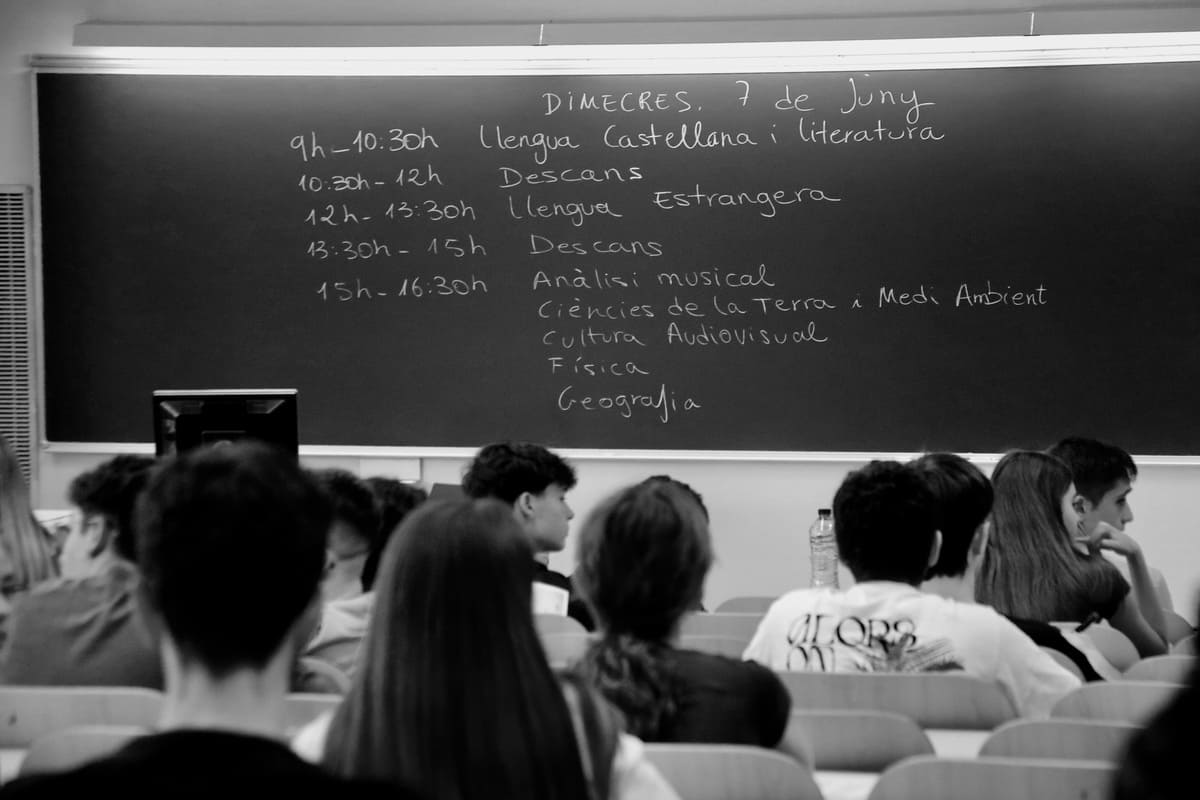 DIMECRES. 7 de Juny
9h-10:30h Llengua Castellana i literatura
10:30h-12h Descans
12h-13:30h Llengua Estrangera
13:30h-15h Descans
15h-16:30h Anàlisi musical
Ciències de la Terra i Medi Ambient
Cultura Audiovisual
Física
Geografia
ALORS